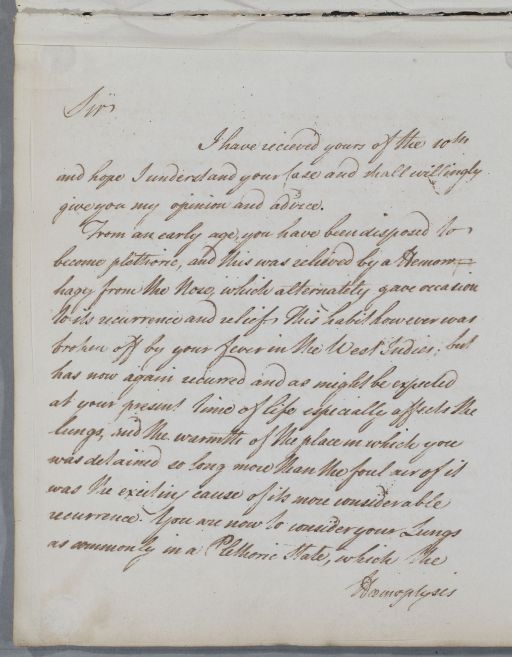 Sir
I have recieved yours of the 10th
and hope I understand your Case and shall willingly
give you my opinion and advice.
From an early age, you have been disposed to
become plethoric, and this was relieved by a Hemorr=
hagy from the Nose, which alternately gave occasion
to its recurrence and relief. This habit however was
broken off by your fever in the West Indies; but
has now again recurred and as might be expected
at your present time of life especially affects the
Lungs, and the warmth of the place in which you
was detained so long more than the foul air of it
was the exciting cause of its more considerable
recurrence. You are now to consider your Lungs
as commonly in a Plethoric State, which the
Hæmoptysis